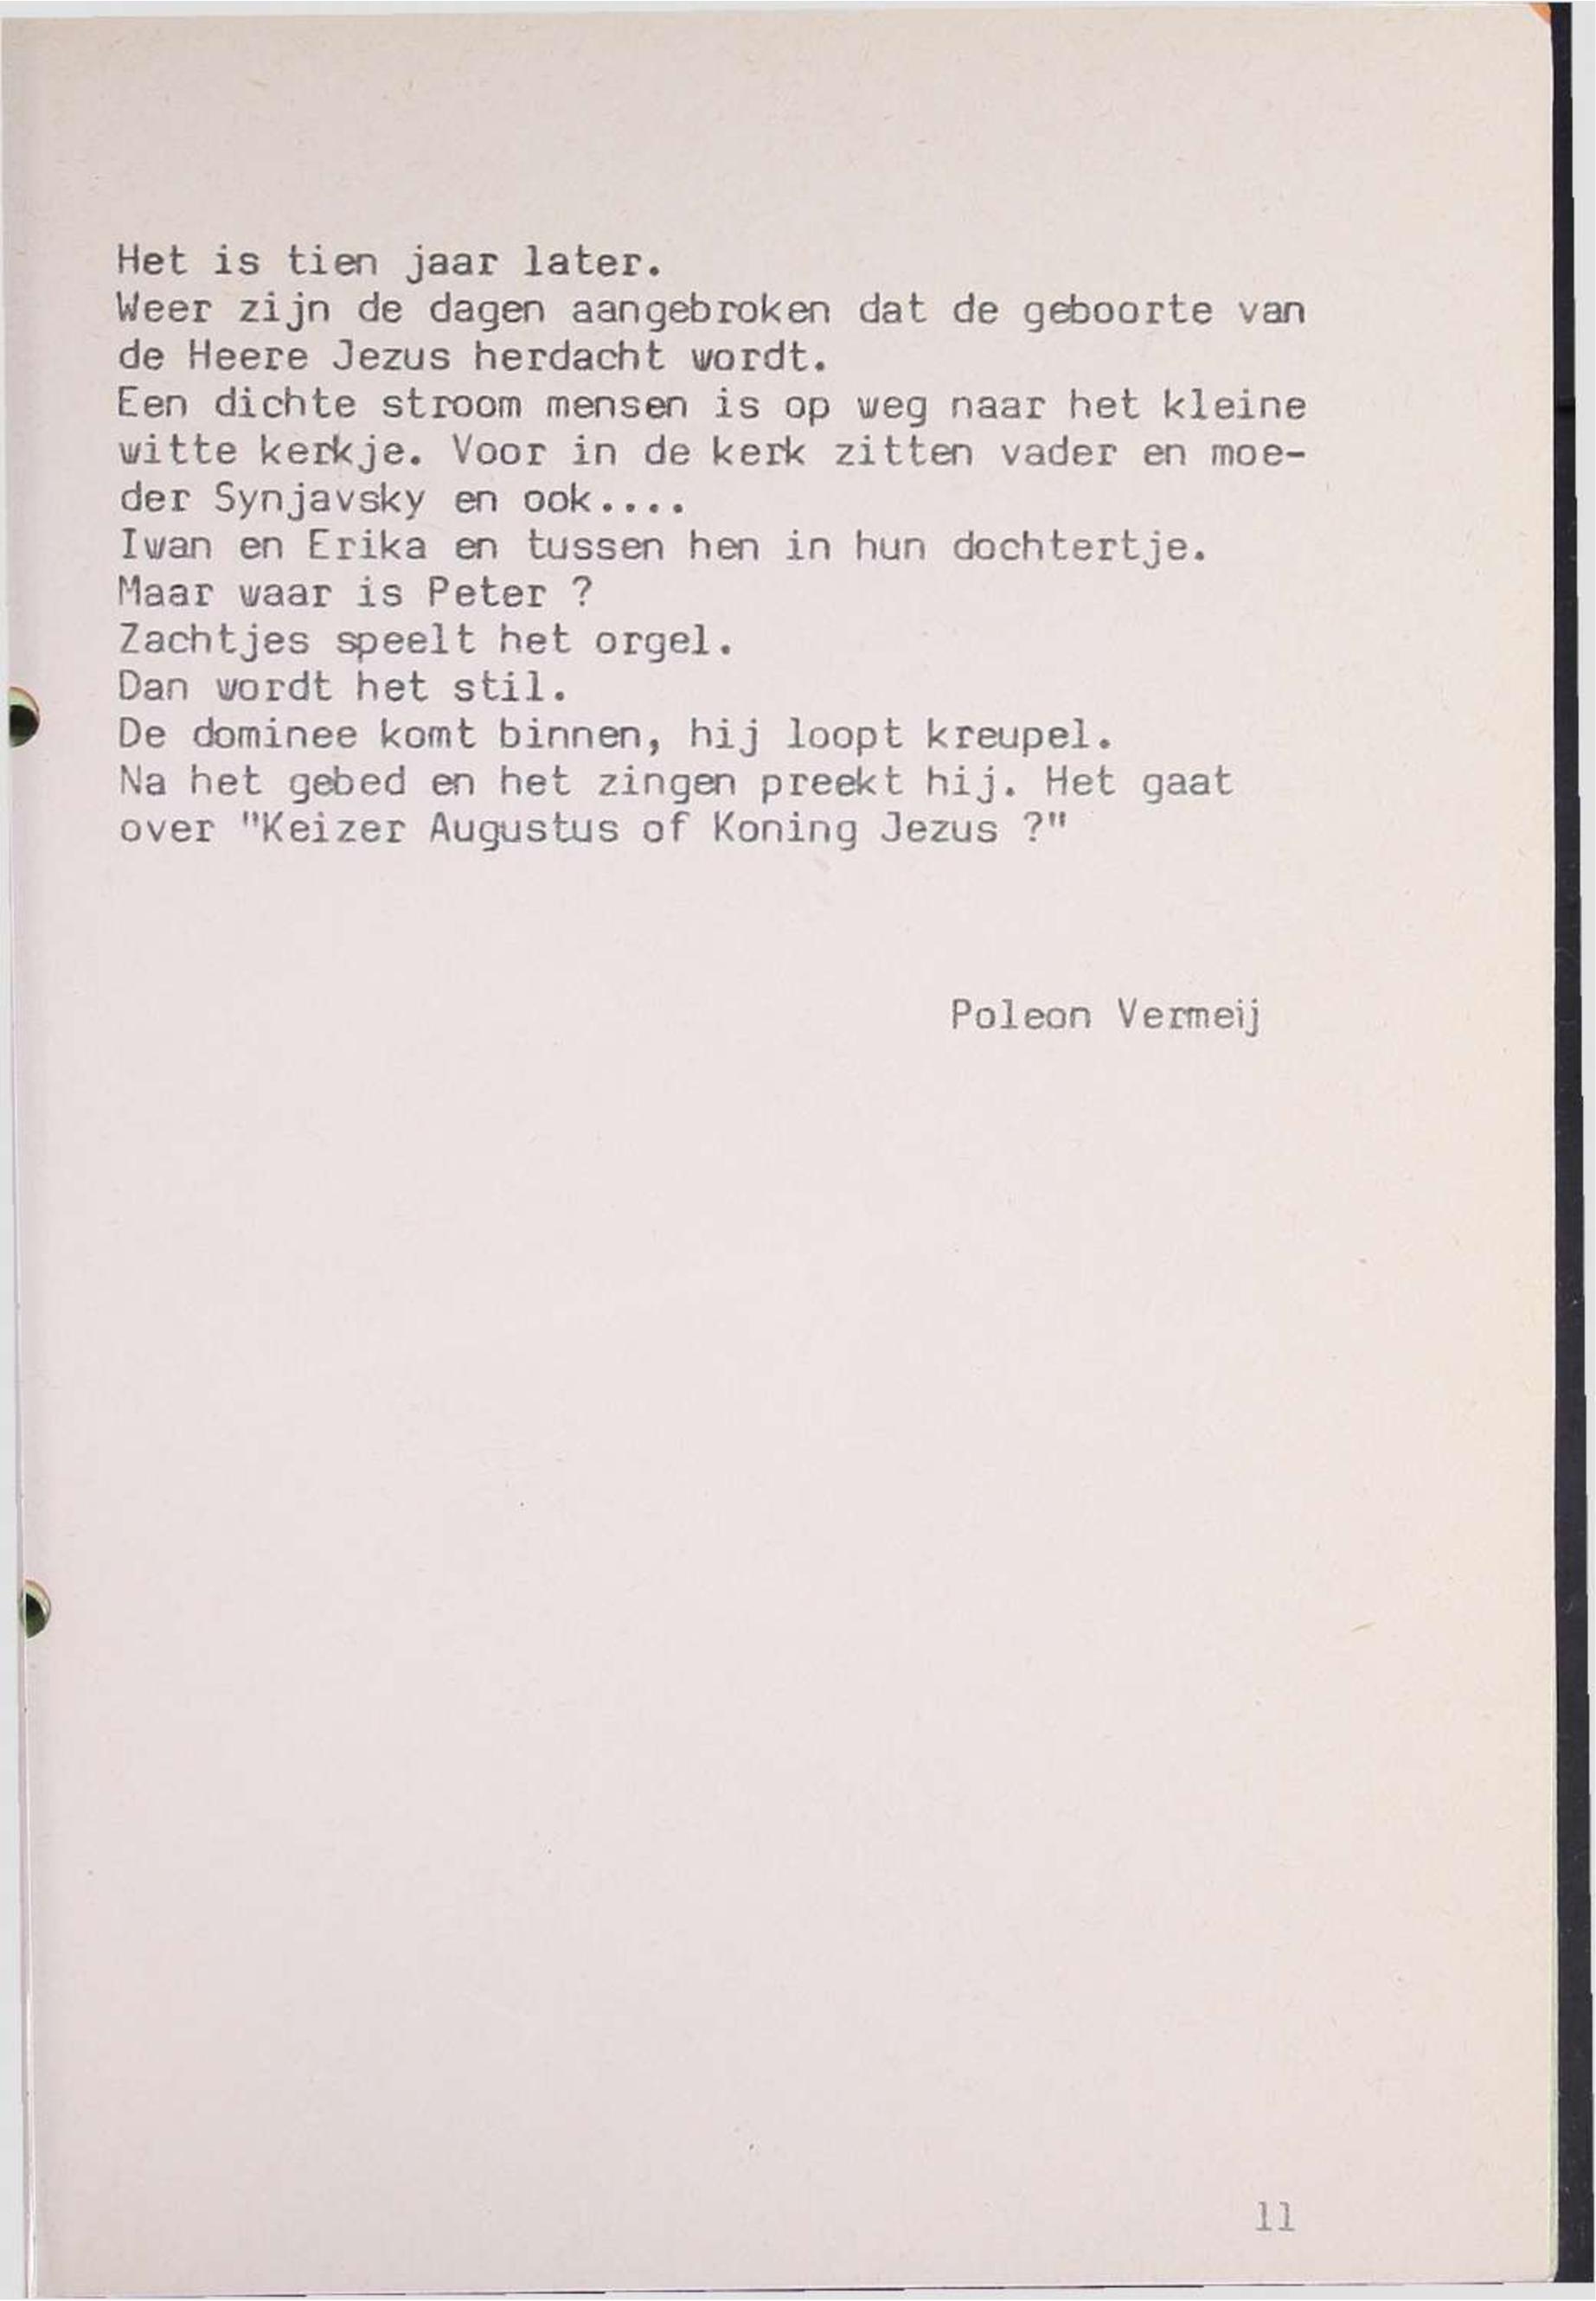 Het is tien jaar later.
Weer zijn de dagen aangebroken dat de geboorte van
de Heere Jezus herdacht wordt.
Een dichte stroom mensen is op weg naar het kleine
witte kerkje. Voor in de kerk zitten vader en moe-
der Synjavsky en ook....
Iwan en Erika en tussen hen in hun dochtertje.
Maar waar is Peter ?
Zachtjes speelt het orgel.
Dan wordt het stil.
De dominee komt binnen, hij loopt kreupel.
Na het gebed en het zingen preekt hij. Het gaat
over "Keizer Augustus of Koning Jezus ?"
Poleon Vermeij
11